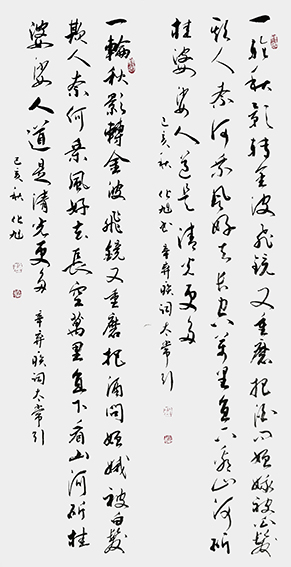 一輪秋影轉金波飛鏡又重磨把酒問姮娥被白髮
欺人奈何乘風好去長空萬里直下看山河斫
桂婆娑人道是清光更多
己亥秋 化旭书 辛弃疾词太常引
一輪秋影轉金波飛鏡又重磨把酒問姮娥被白髮
欺人奈何乘風好去長空萬里直下看山河斫桂
婆娑人道是清光更多 辛弃疾词太常引
己亥秋 化旭